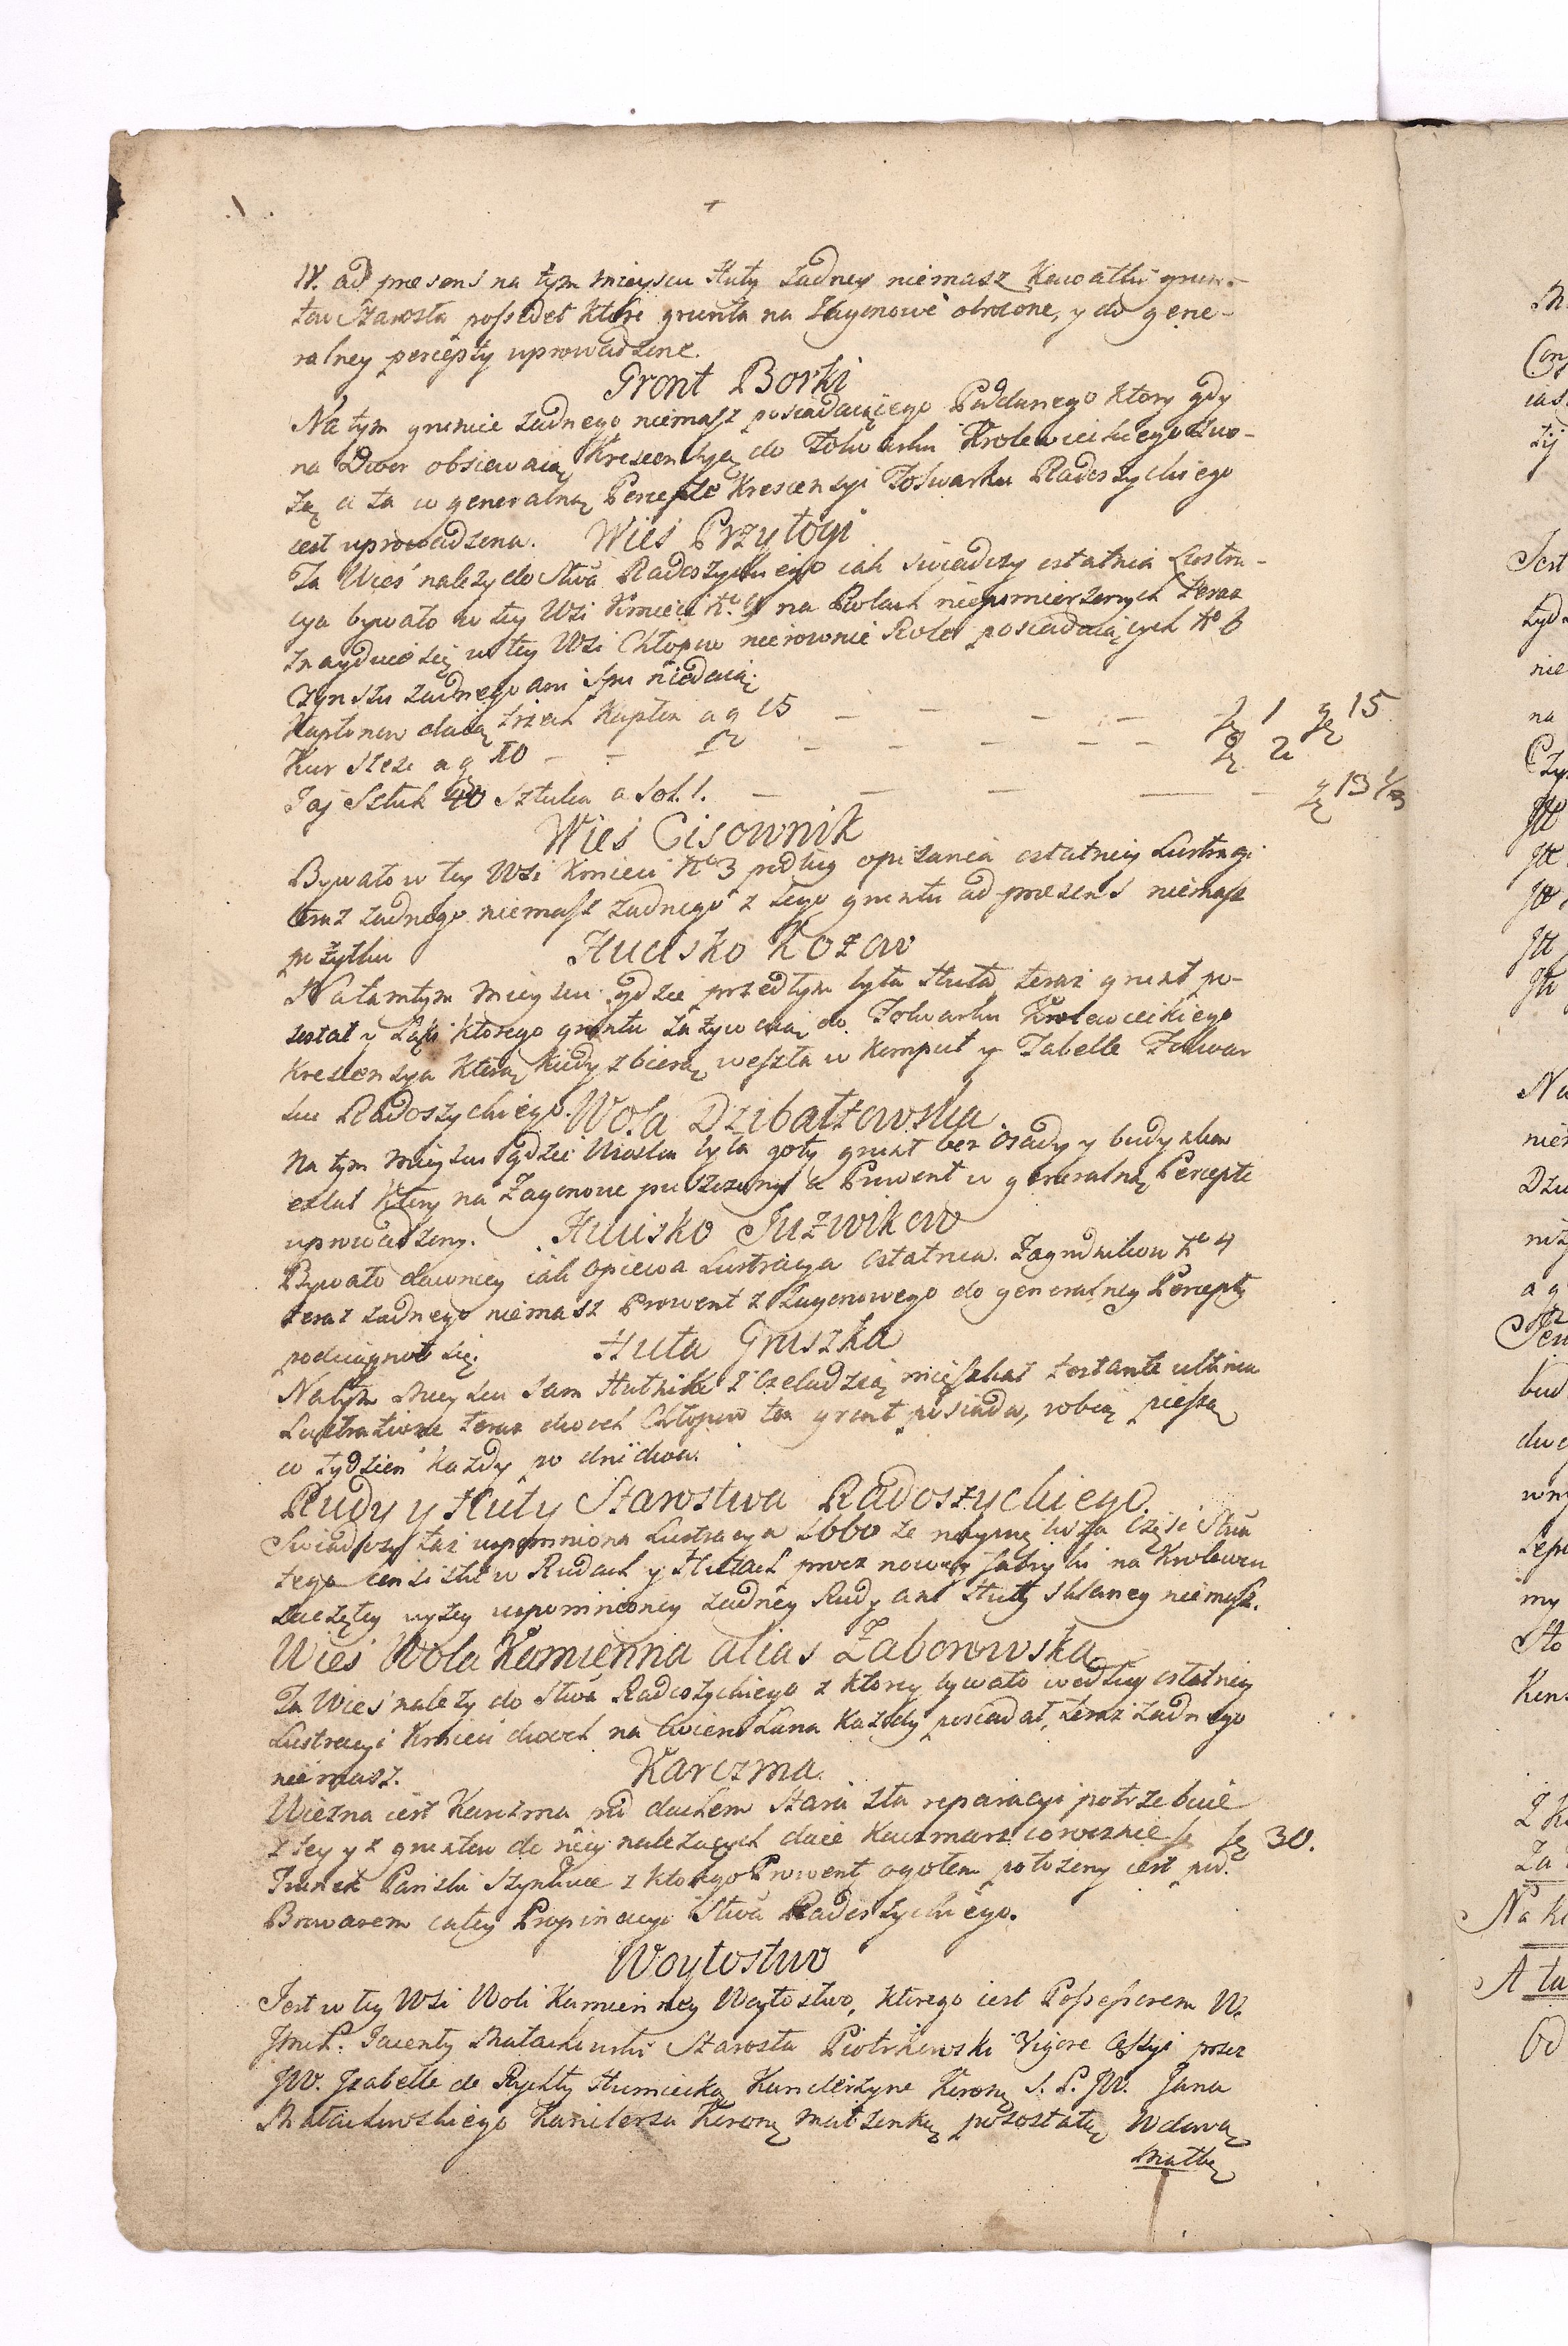 IV. ad presens na tym mieyscu Huty żadney niemasz Kawałki grun-
tow Starosta possedet które grunta na Zagonowe obrocone, y do gene-
ralney percepty uprowadzone.
Gront Borki
Na tym gruncie żadnego niemasz posiadaiącego Poddanego ktory gdy
na Dwor obsiewaią Krescencyą do Folwarku Krolewieckiego zwo-
żą a ta w generalną Percepte Krescensyi Folwarku Radoszyckiego
iest uprowadzona. Wieś Przyłogi
Ta Wieś należy do Stwa Radoszyckiego iak swiadczy ostatnia Lustra-
cya bywało w tey Wsi Kmieci No 9 na Rolach niepomierzonych teraz
znayduie się w tey Wsi Chłopow nierownie Role posiadaiących No 6
Czynszu żadnego ani Spu niedaią
Kapłonow daią trzech Kapłon a g 15 — — — — zł 1 g 15
Kur sześć a g 10 — — — — — — zł 2
Jaj Sztuk 40 Sztuka a Sol. 1. — — — — — g 13 1/3
Wieś Cisownik
Bywało w tey Wsi Kmieci No 3 podług opisania ostatniey Lustracyi
teraz żadnego niemasz żadnego z tego gruntu ad presens niemasz
pożytku Hucisko Kozow
Na tamtym mieyscu gdzie przedtym była Huta, teraz grunt po-
został y Łąki ktorego gruntu zażywaią do Folwarku Krolewieckiego
Krescensya ktorą kiedy zbieraią weszła w Komput y Tabelle Folwar
ku Radoszyckiego. Wola Dzibałtowska
Na tym mieyscu gdzie Wioska była goły grunt bez Osady y budynkow
został ktory na Zagonowe puszczony a Prowent w generalną Percepte
uprowadzony. Hucisko Juzwikow
Bywało dawniey iak opiewa Lustracya Ostatnia. Zagrodnikow No 4
teraz żadnego niemasz Prowent z Zagonowego do generalney Percepty
podciągnoł się. Huta Gruszka
Na tym mieyscu sam Hutnik z Czeladzią mieszkał testante ultima
Lustratione teraz dwoch Chłopow ten grunt posiada, robią pieszą
w tydzień każdy po dni dwa.
Rudy y Huty Starostwa Radoszyckiego
Swiadczy taż wspomniona Lustracya 1660 że naywiększa Część Stwa
tego consistit w Rudach y Hutach przez nowey fabryki na Krolewcu
zaczętey wyżey wspomnioney żadney Rudy ani Huty szklaney niemasz.
Wieś Wola Kamienna alias Zaborowska
Ta Wieś należy do Stwa Radoszyckiego z ktorey bywało według ostatniey
Lustracyi Kmieci dwoch na cwierc Łana Każdy posiadał, teraz żadnego
niemasz. Karczma.
Wiezna iest Karczma pod dachem Stara zła reparacyi potrzebuie
z tey y z gruntow do niey należących daie Karczmarz corocznie zł 30.
Trunek Pański Szynkuie z ktorego Prowent ogołem położony iest pod
Browarem całey Propinacyi Stwa Radoszyckiego.
Woytostwo
Jest w tey Wsi Woli Kamienney Woytostwo, ktorego iest Possessorem W.
Jmć P. Jacenty Małachowski Starosta Piotrkowski Vigore Cessyi przez
JW. Jzabelle de Rychty Humiecką Kanclerzyne Koronną S. P. JW. Jana
Małachowskiego Kanclerza Koronnego małżonkę pozostałą Wdowę
Matkę